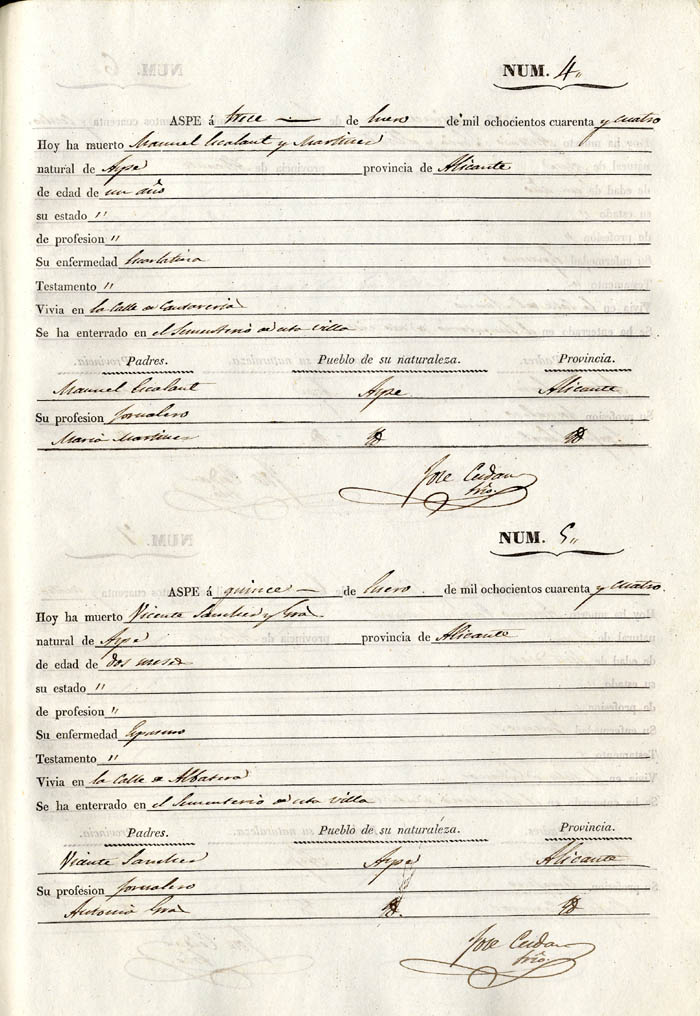 NUM. 4,,
ASPE á trece de Enero de mil ochocientos cuarenta y cuatro
Hoy ha muerto Manuel Escalant y Martinez
natural de Aspe provincia de Alicante
de edad de un año
su estado ,,
de profesion ,,
Su enfermedad Escarlatina
Testamento ,,
Vivia en la Calle de Cantareria
Se ha enterrado en el Sementerio de esta villa
Padres. Pueblo de su naturaleza. Provincia.
Manuel Escalant Aspe Alicante
Su profesion Jornalero
Maria Martinez Id Id
Jose Cerdan
Srio
NUM. 5,,
ASPE á quince de Enero de mil ochocientos cuarenta y cuatro
Hoy ha muerto Vicente Sanchez y
natural de Aspe provincia de Alicante
de edad de dos meses
su estado ,,
de profesion ,,
Su enfermedad Espasmo
Testamento ,,
Vivia en la Calle de Albatera
Se ha enterrado en el Sementerio de esta villa
Padres. Pueblo de su naturaleza. Provincia.
Vicente Sanchez Aspe Alicante
Su profesion Jornalero
Antonia Id Id
Jose Cerdan
Srio